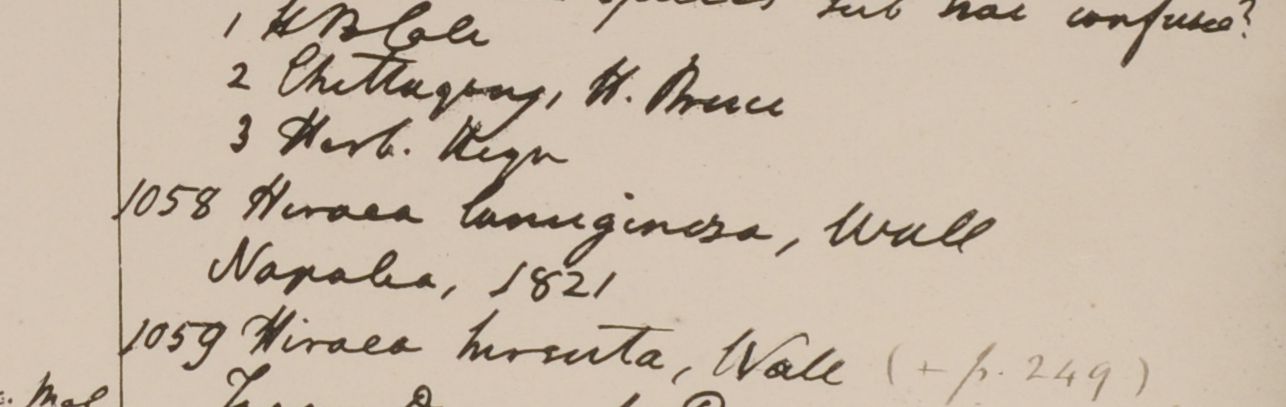 species sub hoc confusae?
1 HBC
2 Chittagong, H. Bruce
3 Herb. Heyn
1058 Hiraea lanuginosa, Wall
Napalia, 1821
1059 Hiraea hirsuta, Wall (+ p. 249)
Mal